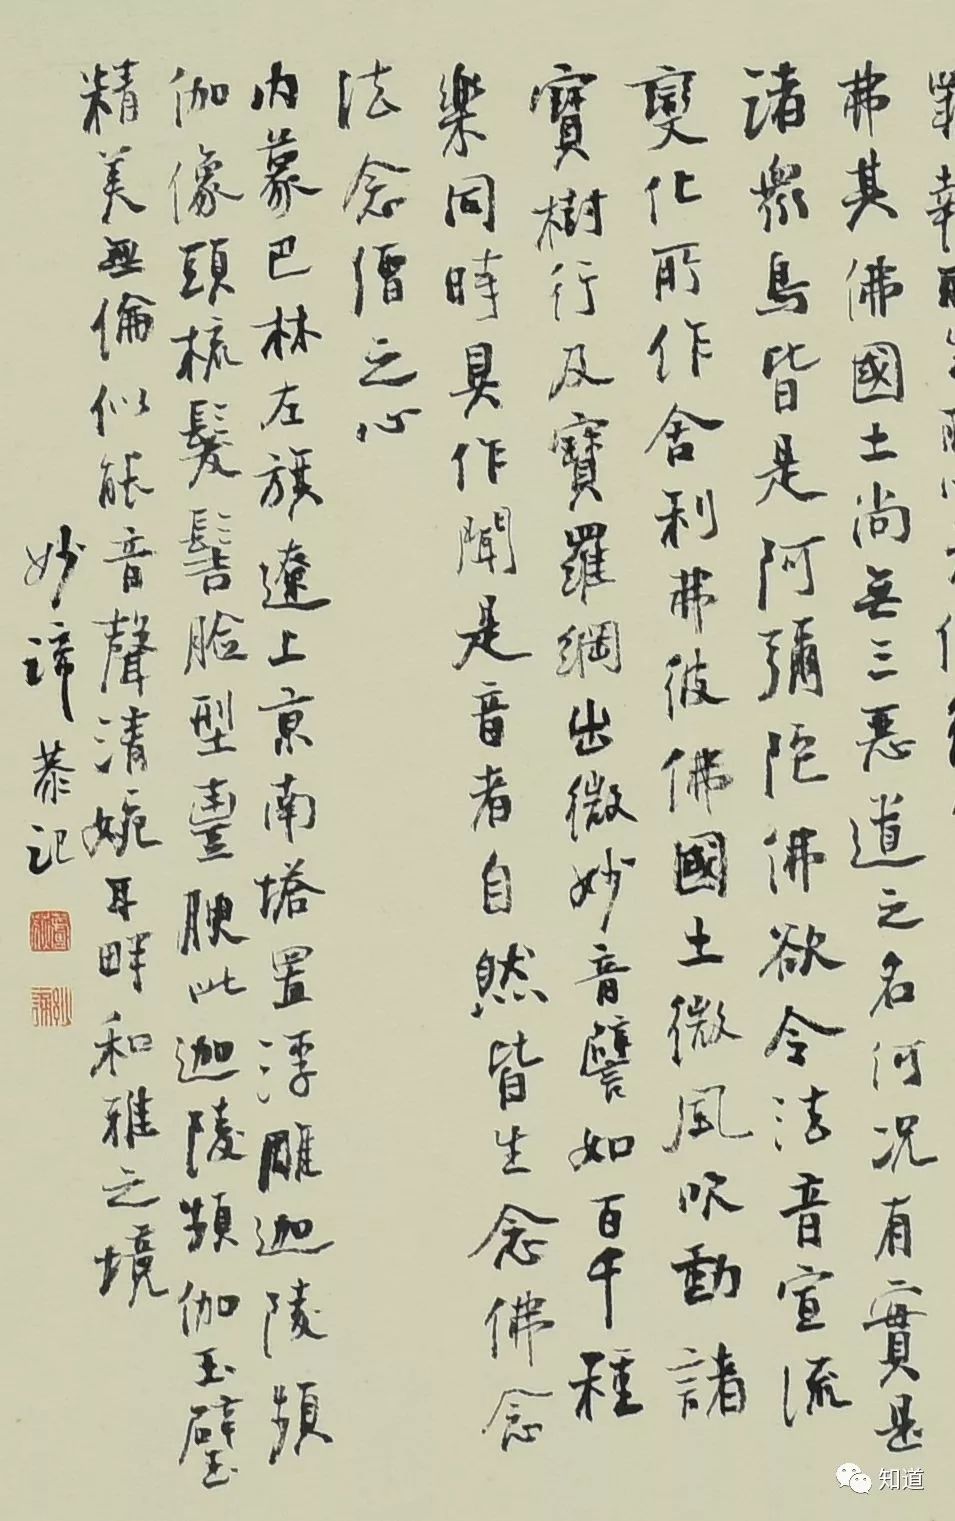 弗其佛國土尚无三恶道之名何况有實是
诸眾鳥皆是阿彌陀佛欲令法音宣流
變化所作舍利弗彼佛國土微風吹動諸
寶樹行及寶羅網出微妙音譬如百千種
樂同時具作聞是音者自然皆生念佛念
法念僧之心
内蒙巴林左旗遼上京南塔置浮雕迦陵頻
伽像頭梳髮髻脸型豐腴此迦陵頻伽玉璧
精美無倫似能音聲清婉耳畔和雅之境
妙諦恭記
知道